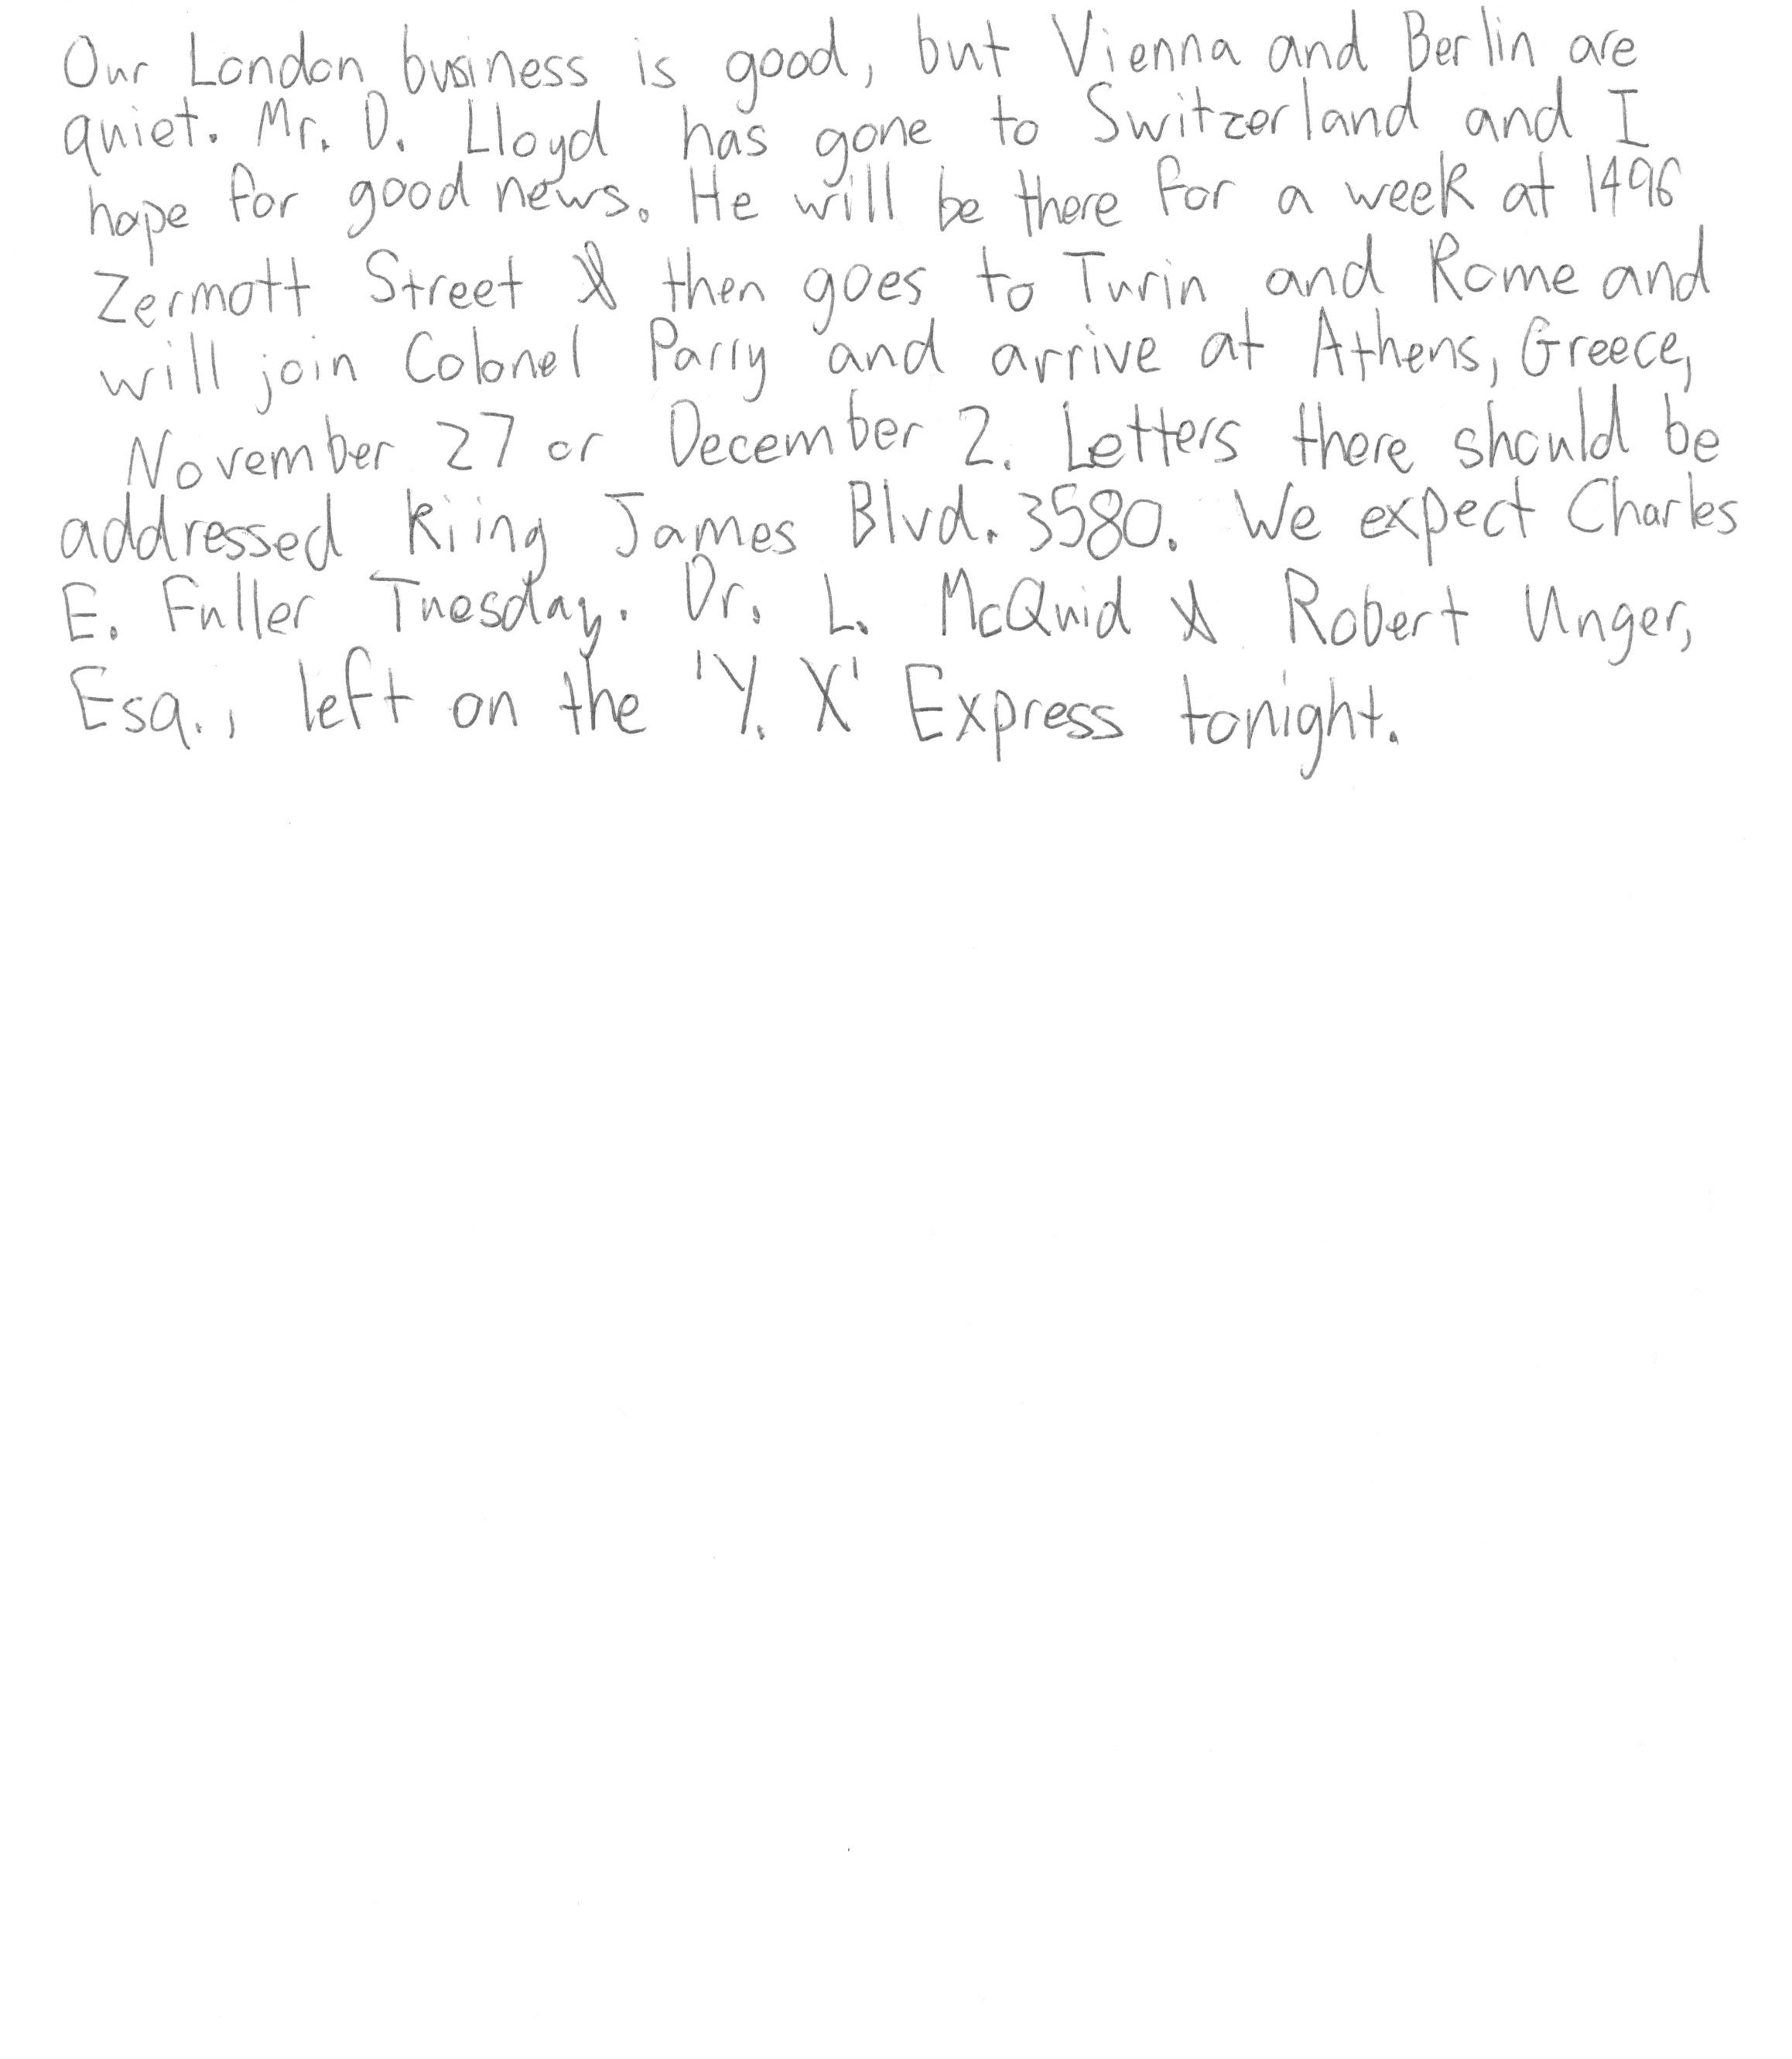 Our London business is good, but Vienna and Berlin are
quiet. Mr. D. Lloyd has gone to Switzerland and I
hope for good news. He will be there for a week at 1496
Zermott Street & then goes to Turin and Rome and
will join Colonel Parry and arrive at Athens, Greece,
November 27 or December 2. Letters there should be
addressed Kiing James Blvd. 3580. We expect Charles
E. Fuller Tuesday. Dr. L. McQuid & Robert Unger,
Esq., left on the 'Y. X' Express tonight.